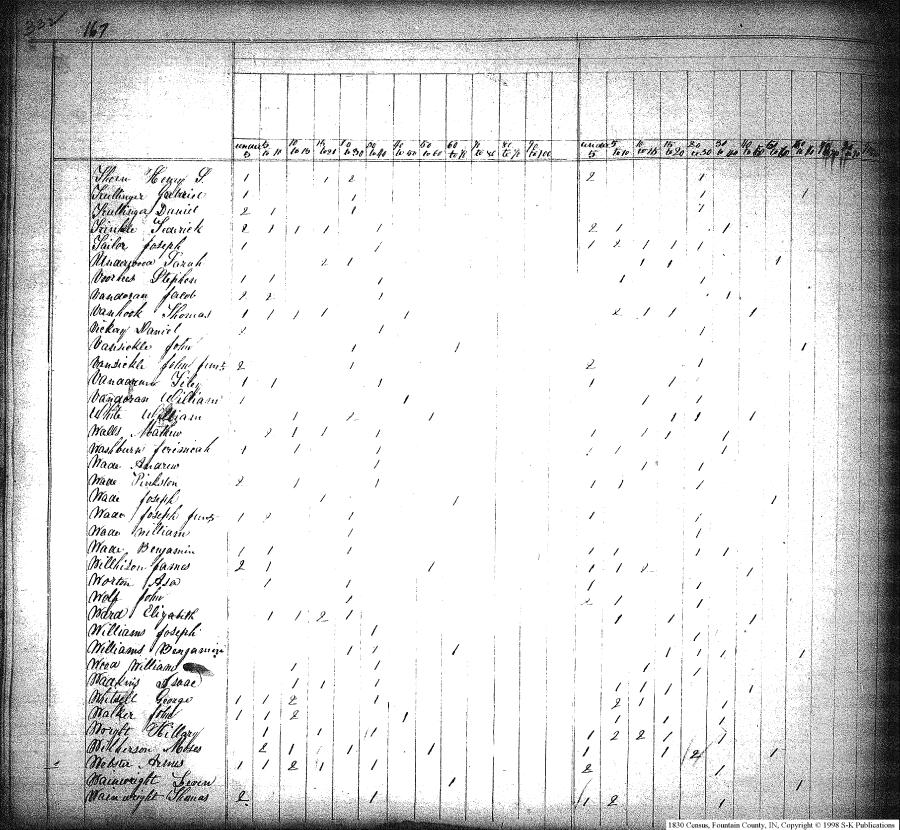 332 167
under 5 5 to 10 10 to 15 15 to 20 20 to 30 30 to 40 40 to 50 50 to 60 60 to 70 70 to 80 80 to 90 90 to 100 under 5 5 to 10 10 to 15 15 to 20 20 to 30 30 to 40 40 to 50 50 to 60
Thorn Henry S. 1 1 2 2 1
Gabriel 1 1 1 1
Daniel 2 1 1 1
Trinkle Fedrick 2 1 1 1 1 2 1 1
Tailor Joseph 1 1 1 2 1 1 1
Underwood Sarah 2 1 1 1 1
Voorhes Stephen 1 1 1 1 1
Vandoran Jacob 2 2 1 1
Vanhook Thomas 1 1 1 1 1 2 1 1 1
Vickay Daniel 2 1 1
Vansickle John 1 1 1
Vansickle John Junr 2 1 2 1
1 1 1 1 1
Vandoran William 1 1 1 1
White William 1 2 1 1 1 1
Walls Mathew 2 1 1 1 1 1 1 1
Washburn Jerimeah 1 1 1 1 1 1
Wade Andrew 1 1 1
Wade Pinkston 2 1 1 1 1 1
Wade Joseph 1 1 1
Wade Joseph Junr 1 2 1 1 1
Wade William 1 1
Wade Benjamin 1 1 1 1 1 1 1
Wilkison James 2 1 1 1 1 2 1
Worton Asa 1 1 1 1
Wolf John 1 2 1 1
Ward Elizabeth 1 1 2 1 1 1 1
Williams Joseph 1 1
Williams Benjamin 1 1 1 1 1 1 1
William 1 1 1 1
Wadkins Isaac 1 1 1 1 1 1 1
Whitsell George 1 1 2 1 2 1 1
Walker John 1 1 2 1 1 1 1
Wright Hillary 1 1 1 1 2 2 1 1
Wilkerson Moses 2 1 1 1 1 1 2 1
Webster 1 1 2 1 1 2 1
Wainwright Levin 1 1
Wainwright Thomas 2 1 1 2 1
1830 Census, Fountain County, IN, Copyright © 1998 S-K Publications